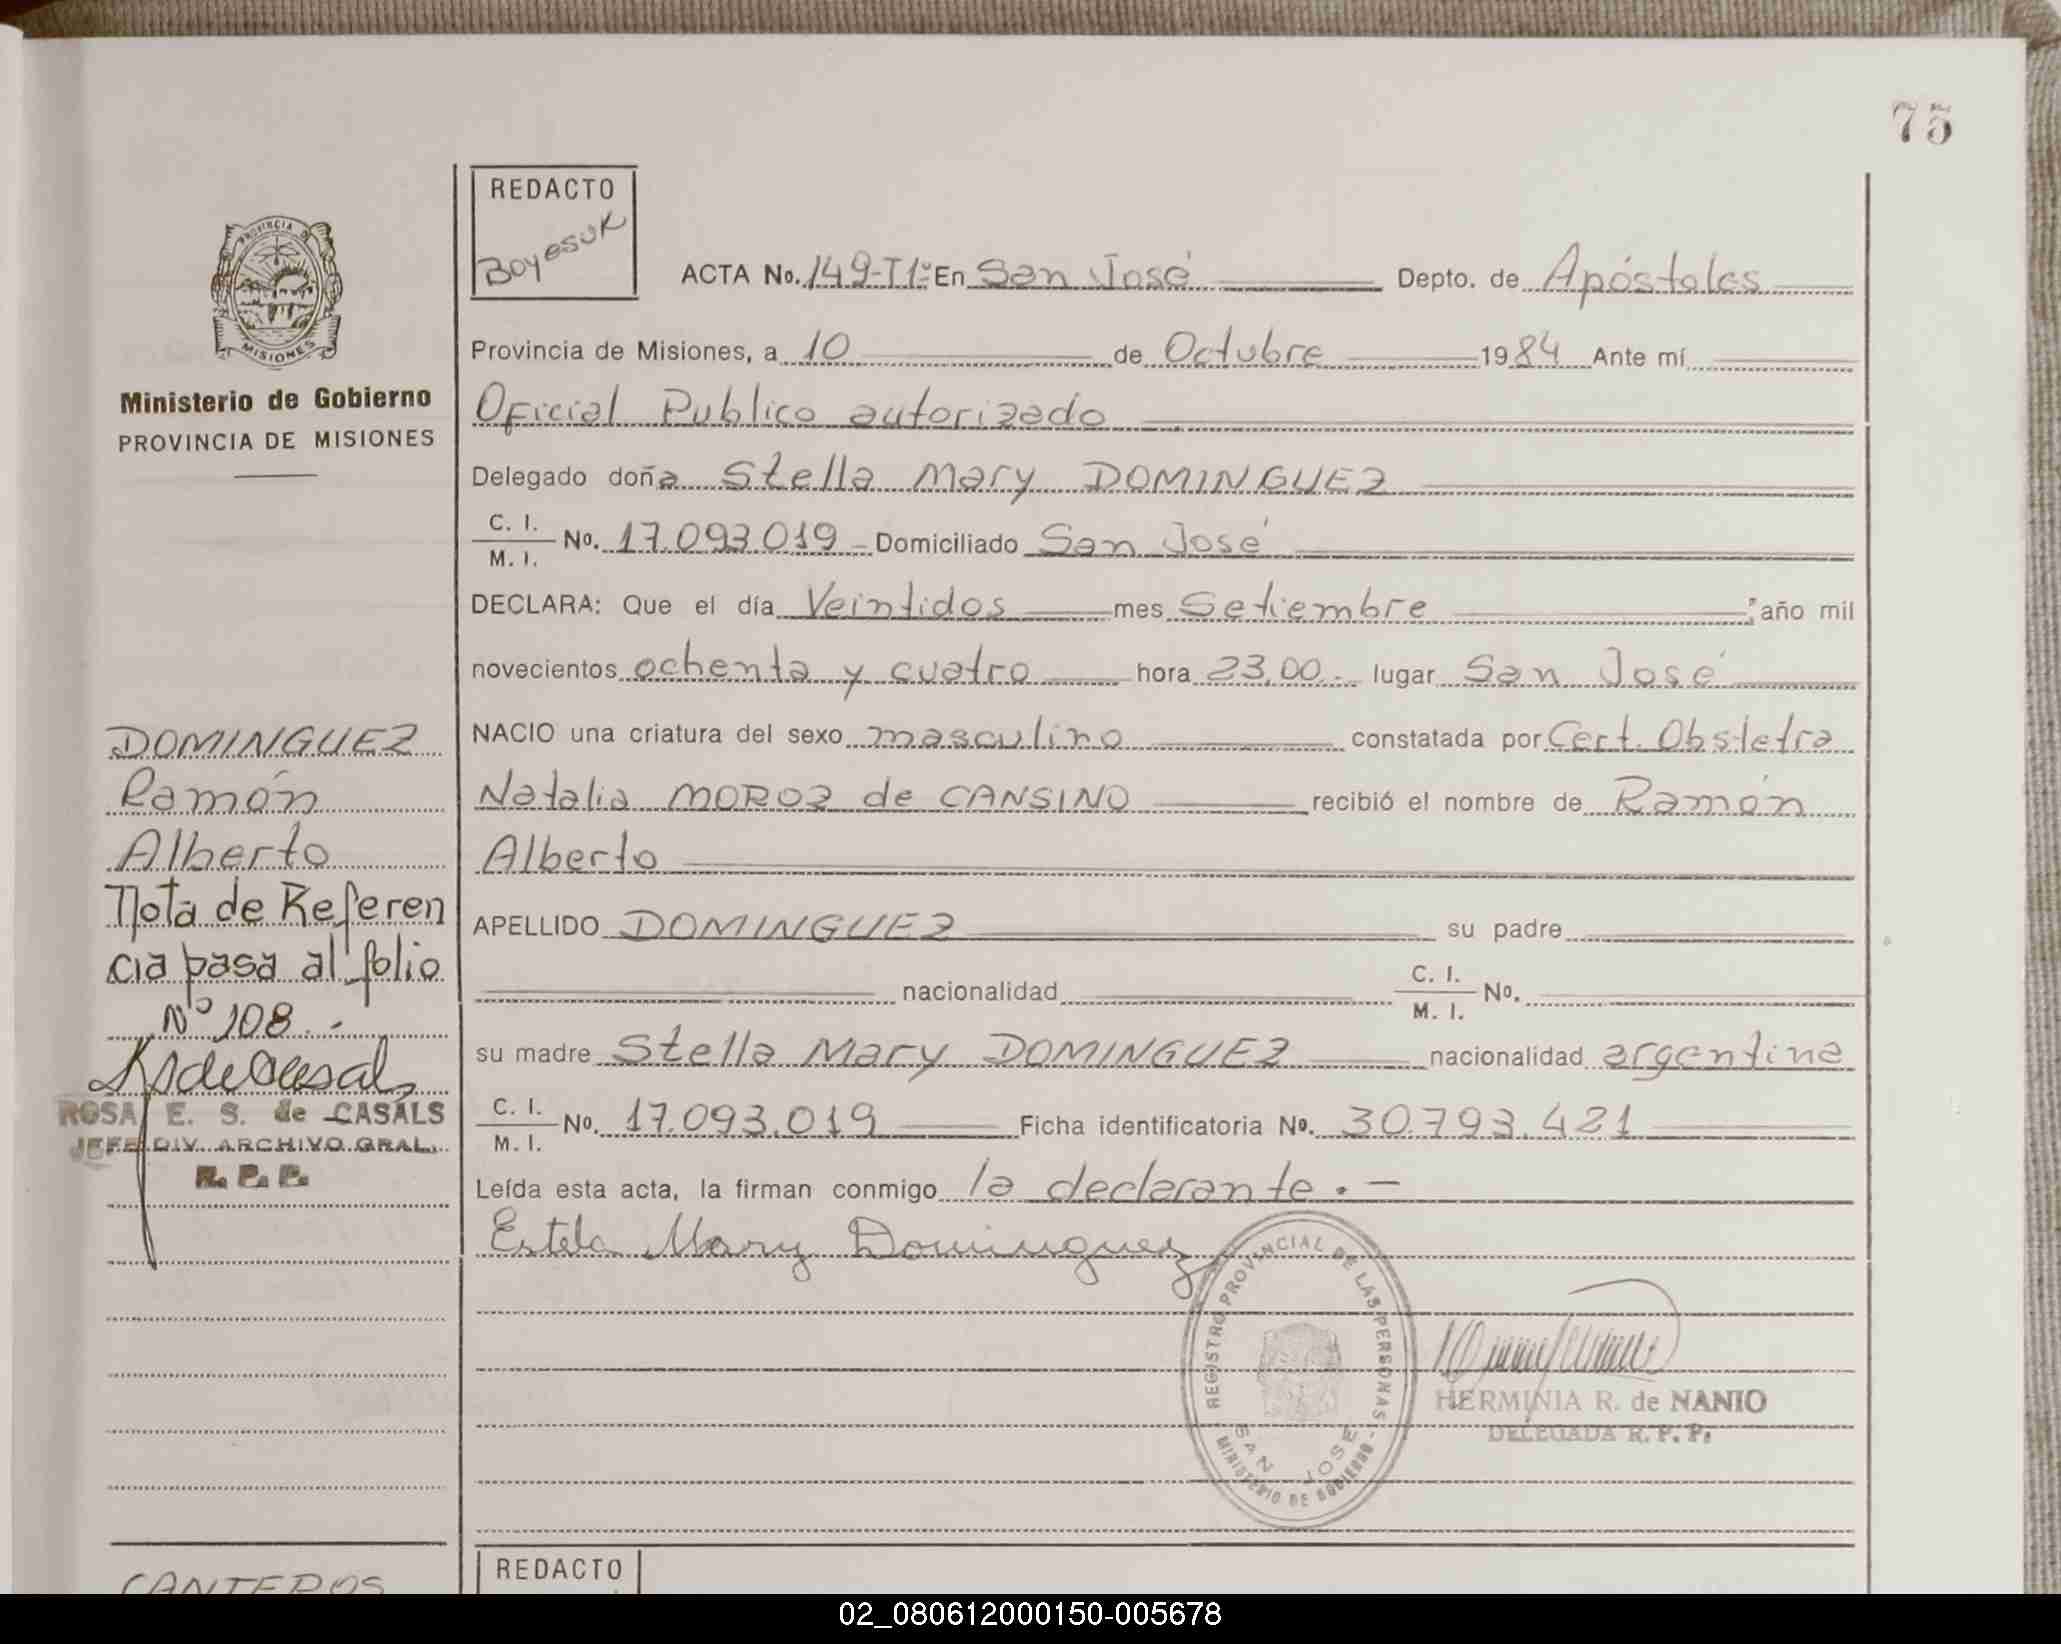 75
REDACTO
Boyesuk
PROVINCIA DE
MISIONES
Ministerio de Gobierno
PROVINCIA DE MISIONES
ACTA No. 149-T1º En San José Depto. de Apóstoles
Provincia de Misiones, a 10 de Octubre 1984 Ante mí
Oficial Publico autorizado
Delegado doña Stella Mary DOMINGUEZ
C. I.
M. I. No. 17.093.019 Domiciliado San José
DECLARA: Que el día Veintidos mes Setiembre año mil
novecientos ochenta y cuatro hora 23,00.- lugar San José
NACIO una criatura del sexo masculino constatada por Cert. Obstetra
Natalia MOROZ de CANSINO recibió el nombre de Ramón
Alberto
APELLIDO DOMINGUEZ su padre
nacionalidad C. I.
M. I. No.
su madre Stella Mary DOMINGUEZ nacionalidad argentina
C. I.
M. I. No. 17.093.019 Ficha identificatoria No. 30.793.421
Leída esta acta, la firman conmigo la declarante.-
Estela Mary Dominguez
REGISTRO PROVINCIAL DE LAS PERSONAS
MINISTERIO DE GOBIERNO
SAN JOSE
HERMINIA R. de NANIO
DELEGADA R. P. P.
DOMINGUEZ
Ramón
Alberto
Nota de Referen
cia pasa al folio
Nº 108.-
ROSA E. S. de CASALS
JEFE DIV. ARCHIVO GRAL.
R. P. P.
CANTEROS
REDACTO
02_080612000150-005678